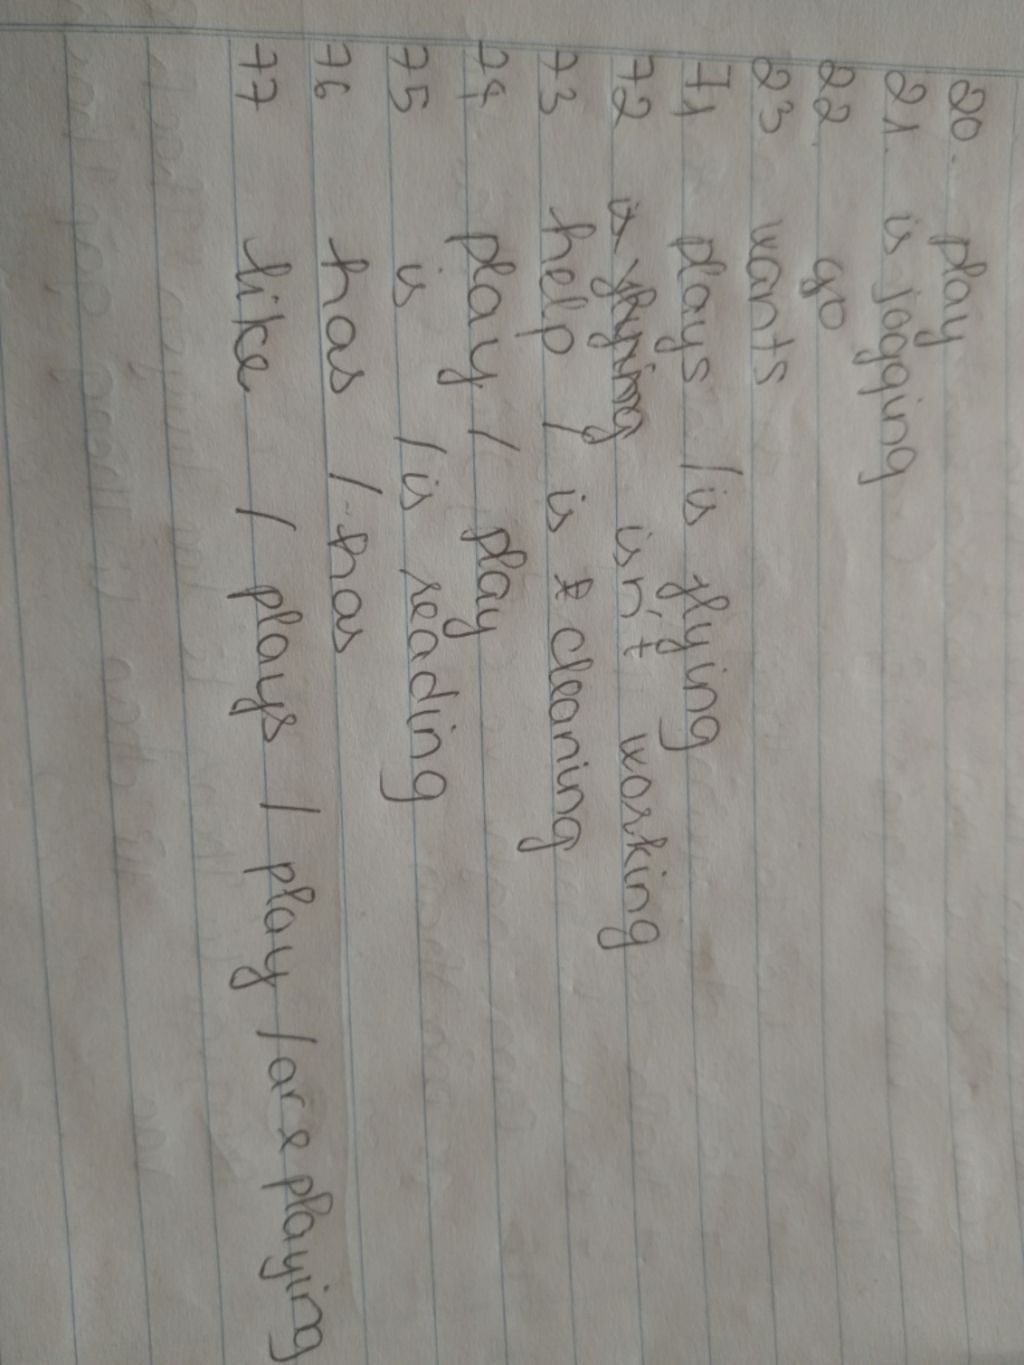 20. play
21. is jogging
22. go
23 wants
71 plays / is flying
72 isn't working
73 help / is cleaning
74 play / play
75 is / is reading
76 has / has
77 like / plays / play / are playing